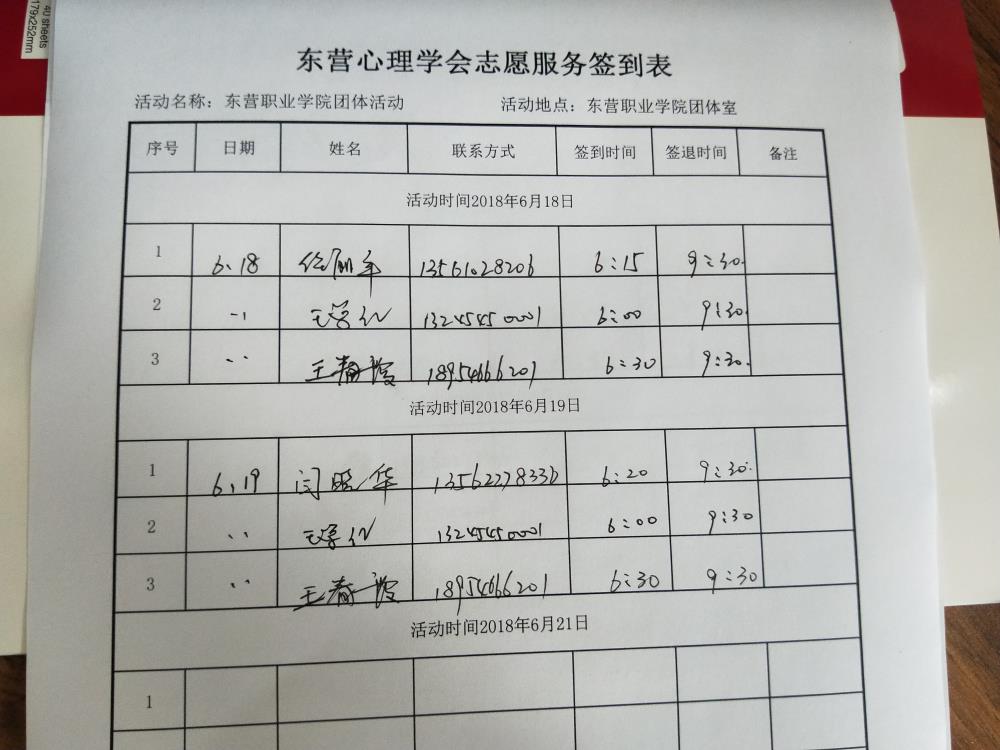 40 sheets
179x252mm
东营心理学会志愿服务签到表
活动名称：东营职业学院团体活动 活动地点：东营职业学院团体室
序号 日期 姓名 联系方式 签到时间 签退时间 备注
活动时间2018年6月18日
1 6、18 13561028206 6:15 9:30.
2 王学仁 13245450001 6:00 9:30.
3 王春霞 18954666201 6:30 9:30.
活动时间2018年6月19日
1 6、19 闫昭华 6:20 9:30.
2 王学仁 13245450001 6:00 9:30
3 王春霞 18954666201 6:30 9:30
活动时间2018年6月21日
1